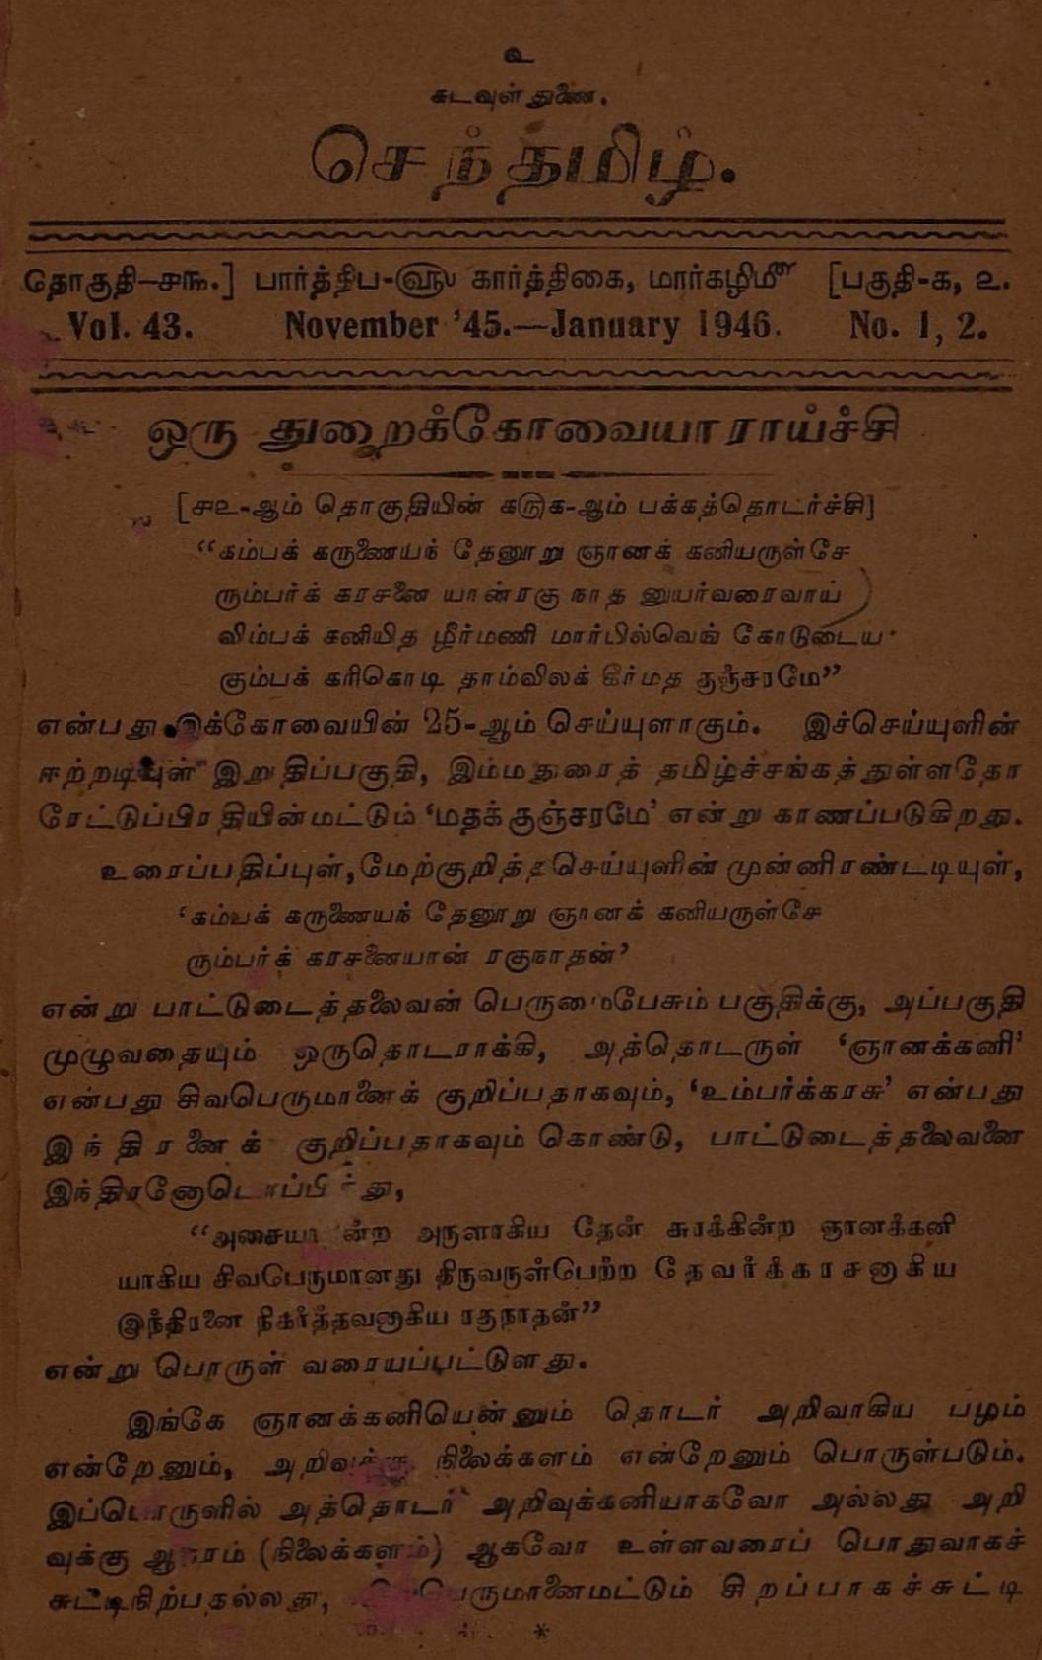 உ
கடவுள் துணை.
செந்தமிழ்.
தொகுதி—௪௩.] பார்த்திப-௵ கார்த்திகை, மார்கழி௴ [பகுதி-௧, ௨.
Vol. 43. November '45.—January 1946. No. 1, 2.
ஒரு துறைக்கோவையாராய்ச்சி
[௪௨-ஆம் தொகுதியின் ௧௫௧-ஆம் பக்கத்தொடர்ச்சி]
“கம்பக் கருணையந் தேனூறு ஞானக் கனியருள்சே
ரும்பர்க் கரசனை யான்ரகு நாத னுயர்வரைவாய்
விம்பக் கனியித ழீர்மணி மார்பில்வெங் கோடுடைய
கும்பக் கரிகொடி தாம்விலக் கீர்மத குஞ்சரமே”
என்பது இக்கோவையின் 25-ஆம் செய்யுளாகும். இச்செய்யுளின்
ஈற்றடியுள் இறுதிப்பகுதி, இம்மதுரைத் தமிழ்ச்சங்கத்துள்ளதோ
ரேட்டுப்பிரதியின்மட்டும் ‘மதக்குஞ்சரமே’ என்று காணப்படுகிறது.
உரைப்பதிப்புள், மேற்குறித்த செய்யுளின் முன்னிரண்டடியுள்,
‘கம்பக் கருணையந் தேனூறு ஞானக் கனியருள்சே
ரும்பர்க் கரசனையான் ரகுநாதன்’
என்று பாட்டுடைத்தலைவன் பெருமைபேசும் பகுதிக்கு, அப்பகுதி
முழுவதையும் ஒருதொடராக்கி, அத்தொடருள் ‘ஞானக்கனி’
என்பது சிவபெருமானைக் குறிப்பதாகவும், ‘உம்பர்க்கரசு’ என்பது
இந்திரனைக் குறிப்பதாகவும் கொண்டு, பாட்டுடைத்தலைவனை
இந்திரனோடொப்பித்து,
“அசையாநின்ற அருளாகிய தேன் சுரக்கின்ற ஞானக்கனி
யாகிய சிவபெருமானது திருவருள்பெற்ற தேவர்க்கரசனாகிய
இந்திரனை நிகர்த்தவனாகிய ரகுநாதன்”
என்று பொருள் வரையப்பட்டுளது.
இங்கே ஞானக்கனியென்னும் தொடர் அறிவாகிய பழம்
என்றேனும், அறிவுக்கு நிலைக்களம் என்றேனும் பொருள்படும்.
இப்பொருளில் அத்தொடர் அறிவுக்கனியாகவோ அல்லது அறி
வுக்கு ஆகரம் (நிலைக்களம்) ஆகவோ உள்ளவரைப் பொதுவாகச்
சுட்டிநிற்பதல்லது, சிவபெருமானைமட்டும் சிறப்பாகச்சுட்டி
*